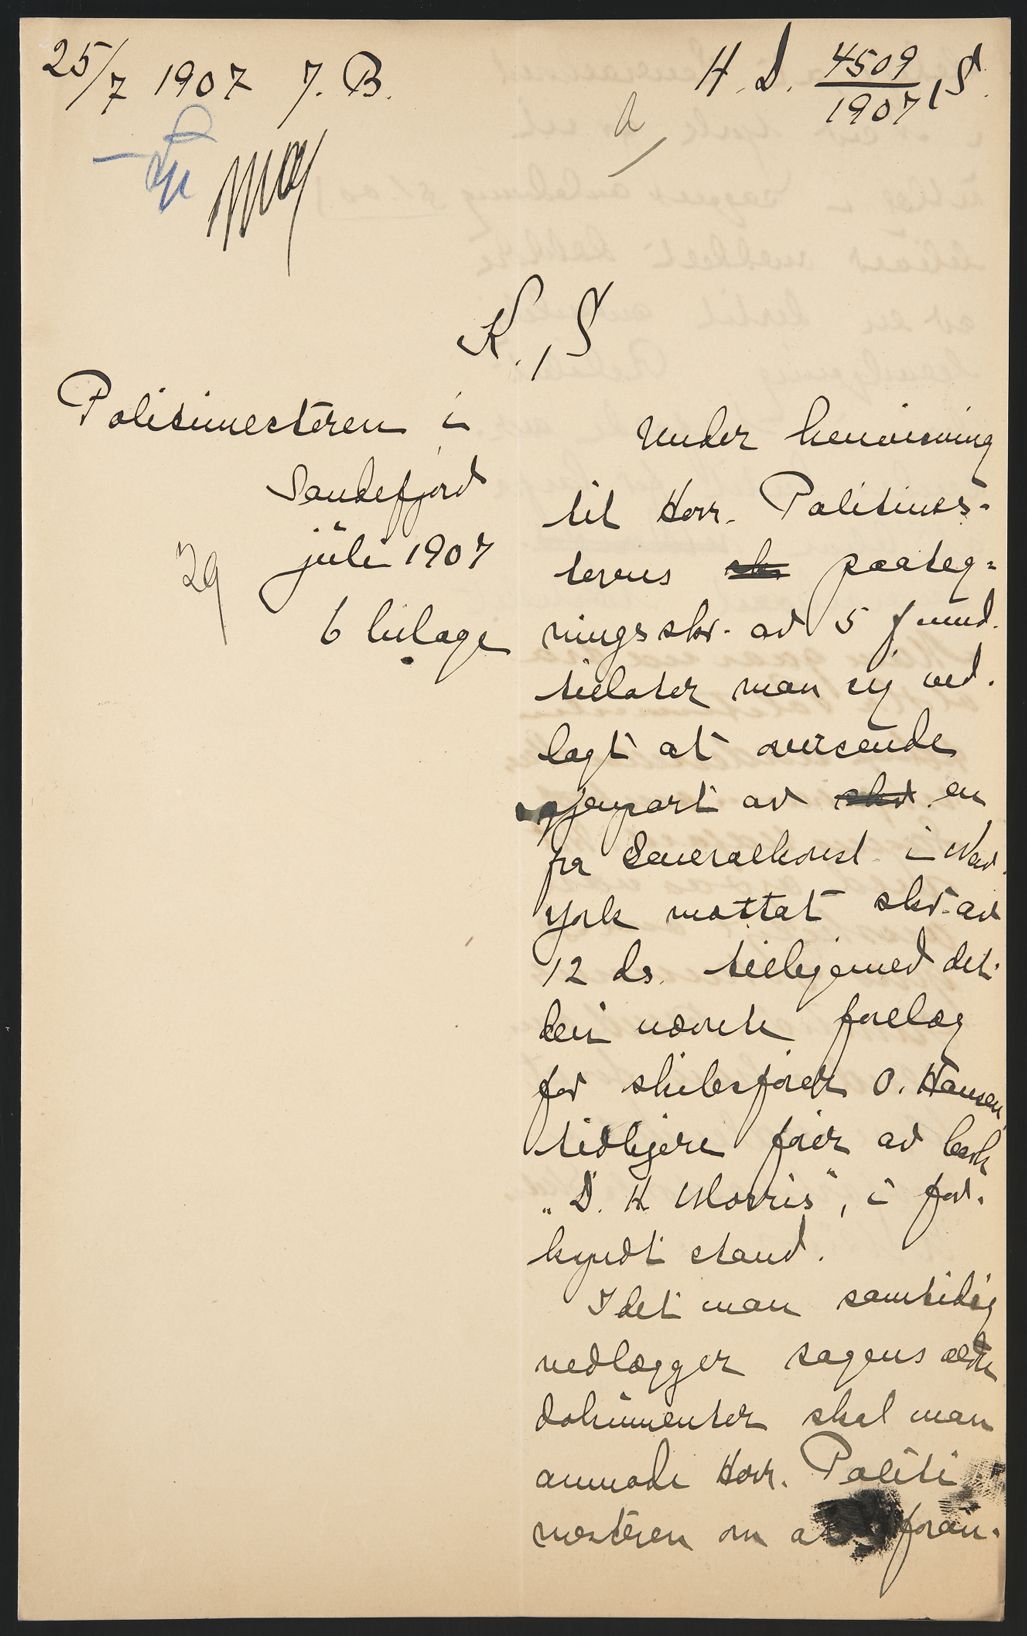 25/7 1907 J. B.
H. D. 4509/1907, S.
K., S
Politimesteren i
Sandefjord
29 juli 1907
6 bilage
Under henvisning
til Herr. Politimes-
terens paateg-
ningsskr. av 5 f mnd.
tillater man sig ved-
lagt at oversende
gjenpart av skr. en
fra Generalkonsl. i New
York mottat skr. av
12 ds. tillikemed det
deri nævnte forelæg
for skibsfører O. Hansen,
tidligere fører av bark
"D. H. Morris", i for-
kyndt stand.
Idet man samtidig
vedlægger sagens ældre
dokumenter skal man
anmode Herr. Politi
mesteren om at foran-